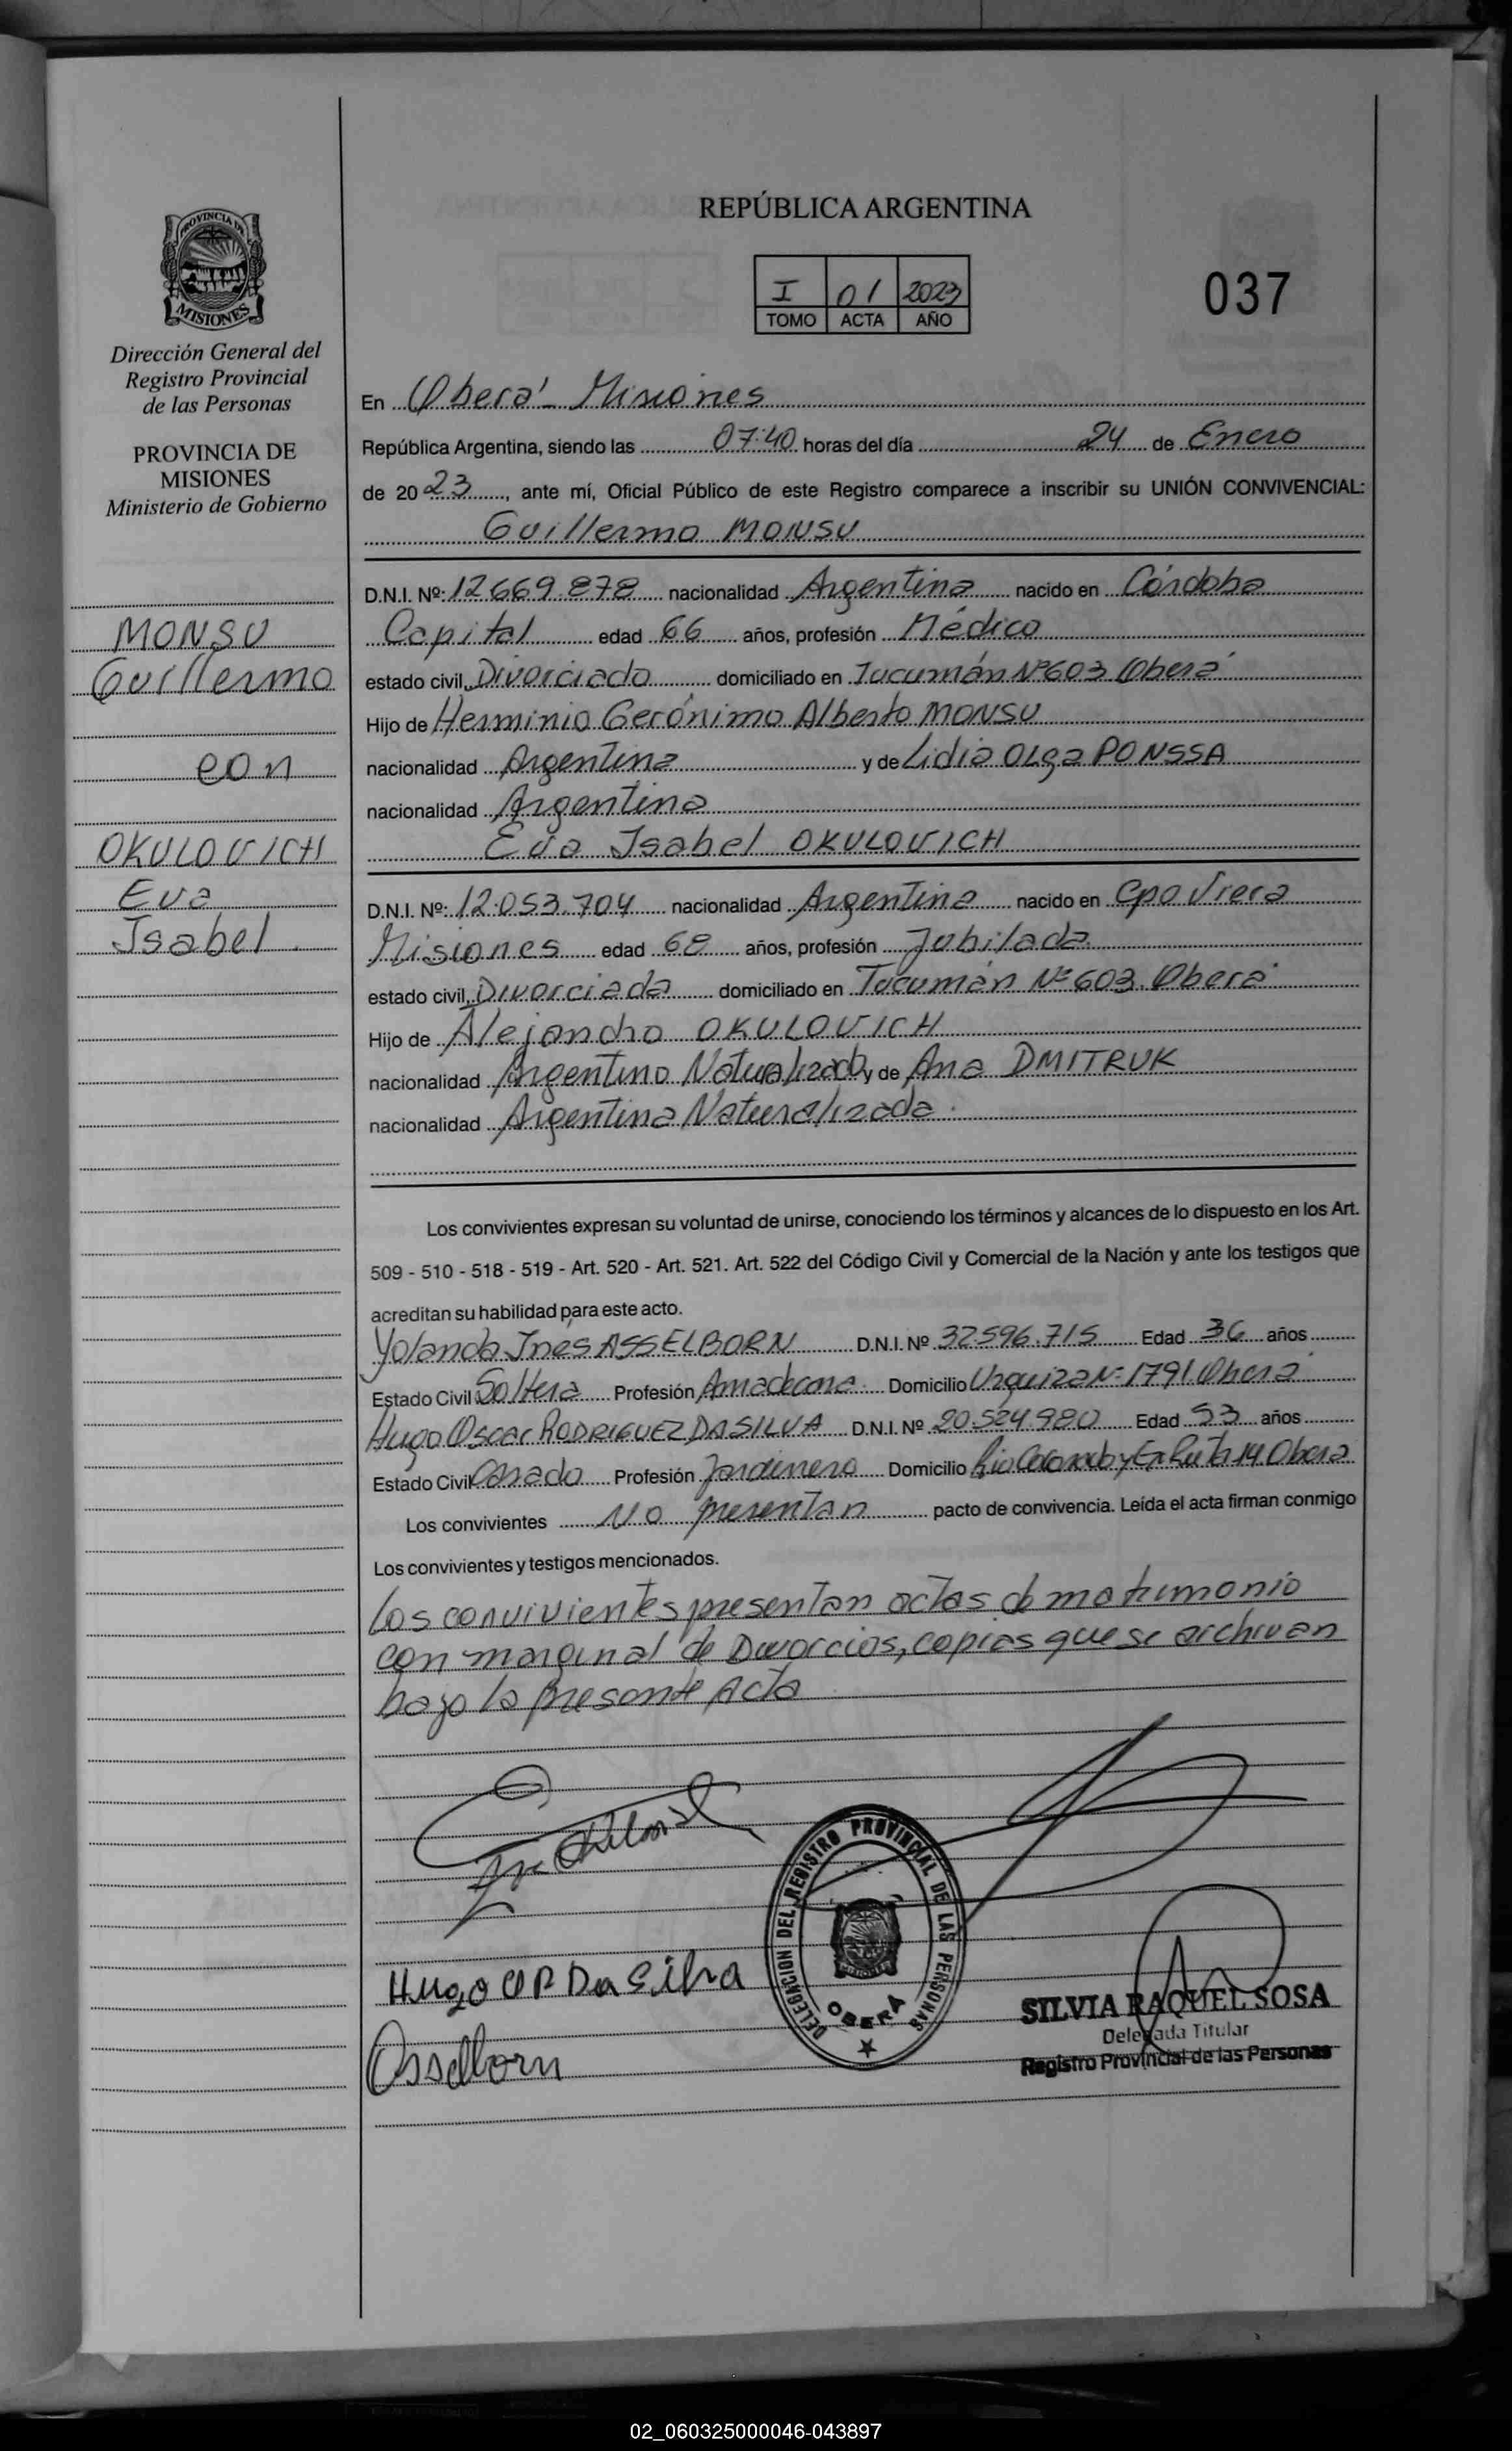 REPÚBLICA ARGENTINA
PROVINCIA DE
MISIONES
I 01 2023
TOMO ACTA AÑO
037
Dirección General del
Registro Provincial
de las Personas
PROVINCIA DE
MISIONES
Ministerio de Gobierno
MONSU
Guillermo
con
OKULOVICH
Eva
Isabel.
En Oberá - Misiones
República Argentina, siendo las 07:40 horas del día 24 de Enero
de 2023, ante mí, Oficial Público de este Registro comparece a inscribir su UNIÓN CONVIVENCIAL:
Guillermo MONSU
D.N.I. Nº: 12.669.878 nacionalidad Argentina nacido en Córdoba
Capital edad 66 años, profesión Médico
estado civil Divorciado domiciliado en Tucumán Nº 603 Oberá
Hijo de Herminio Gerónimo Alberto MONSU
nacionalidad Argentina y de Lidia Olga PONSSA
nacionalidad Argentina
Eva Isabel OKULOVICH
D.N.I. Nº: 12.053.704 nacionalidad Argentina nacido en Cpo Viera
Misiones edad 68 años, profesión Jubilada
estado civil Divorciada domiciliado en Tucumán Nº 603. Oberá
Hijo de Alejandro OKULOVICH
nacionalidad Argentino Naturalizado y de Ana DMITRUK
nacionalidad Argentina Naturalizada.
Los convivientes expresan su voluntad de unirse, conociendo los términos y alcances de lo dispuesto en los Art.
509 - 510 - 518 - 519 - Art. 520 - Art. 521. Art. 522 del Código Civil y Comercial de la Nación y ante los testigos que
acreditan su habilidad para este acto.
Yolanda Ines ASSELBORN D.N.I. Nº 32.596.715 Edad 36 años
Estado Civil Soltera Profesión Amadecasa Domicilio Urquiza Nº 1791 Oberá
Hugo Oscar RODRIGUEZ DA SILVA D.N.I. Nº 20.524.980 Edad 53 años
Estado Civil Casado Profesión Jardinero Domicilio Rio Colorado y Ex Ruta 14 Oberá
Los convivientes No presentan pacto de convivencia. Leída el acta firman conmigo
Los convivientes y testigos mencionados.
Los convivientes presentan actas de matrimonio
con marginal de Divorcios, copias que se archivan
bajo la presente Acta
DELEGACION DEL REGISTRO PROVINCIAL DE LAS PERSONAS
MISIONES
OBERA
Hugo O R Da Silva
Asselborn
SILVIA RAQUEL SOSA
Delegada Titular
Registro Provincial de las Personas
02_060325000046-043897